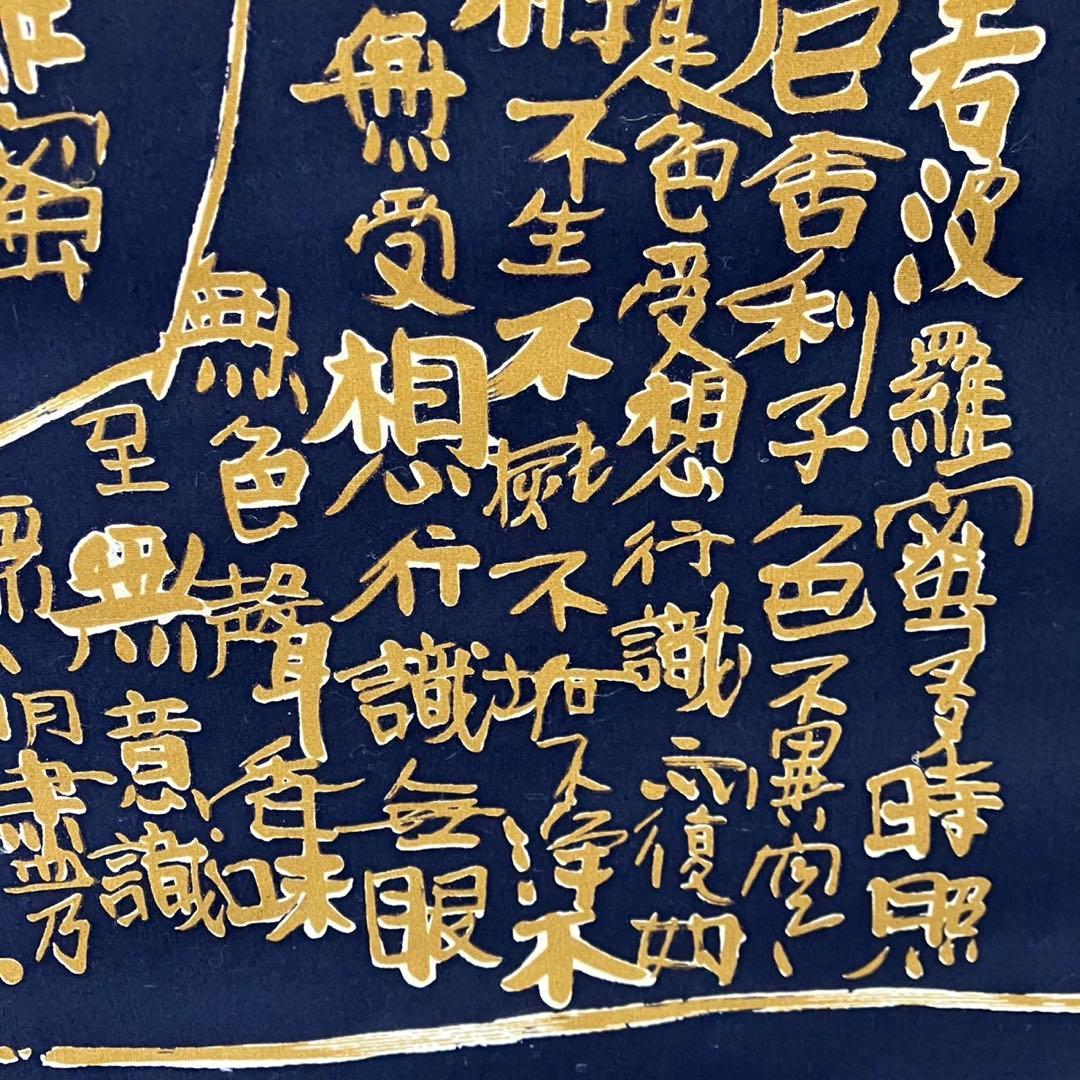 若波羅蜜多時照
舍利子色不異空
是色受想行識亦復如
不生不滅不垢不淨不
無受想行識無眼
無色聲香味
至無意識
明盡乃
蜜